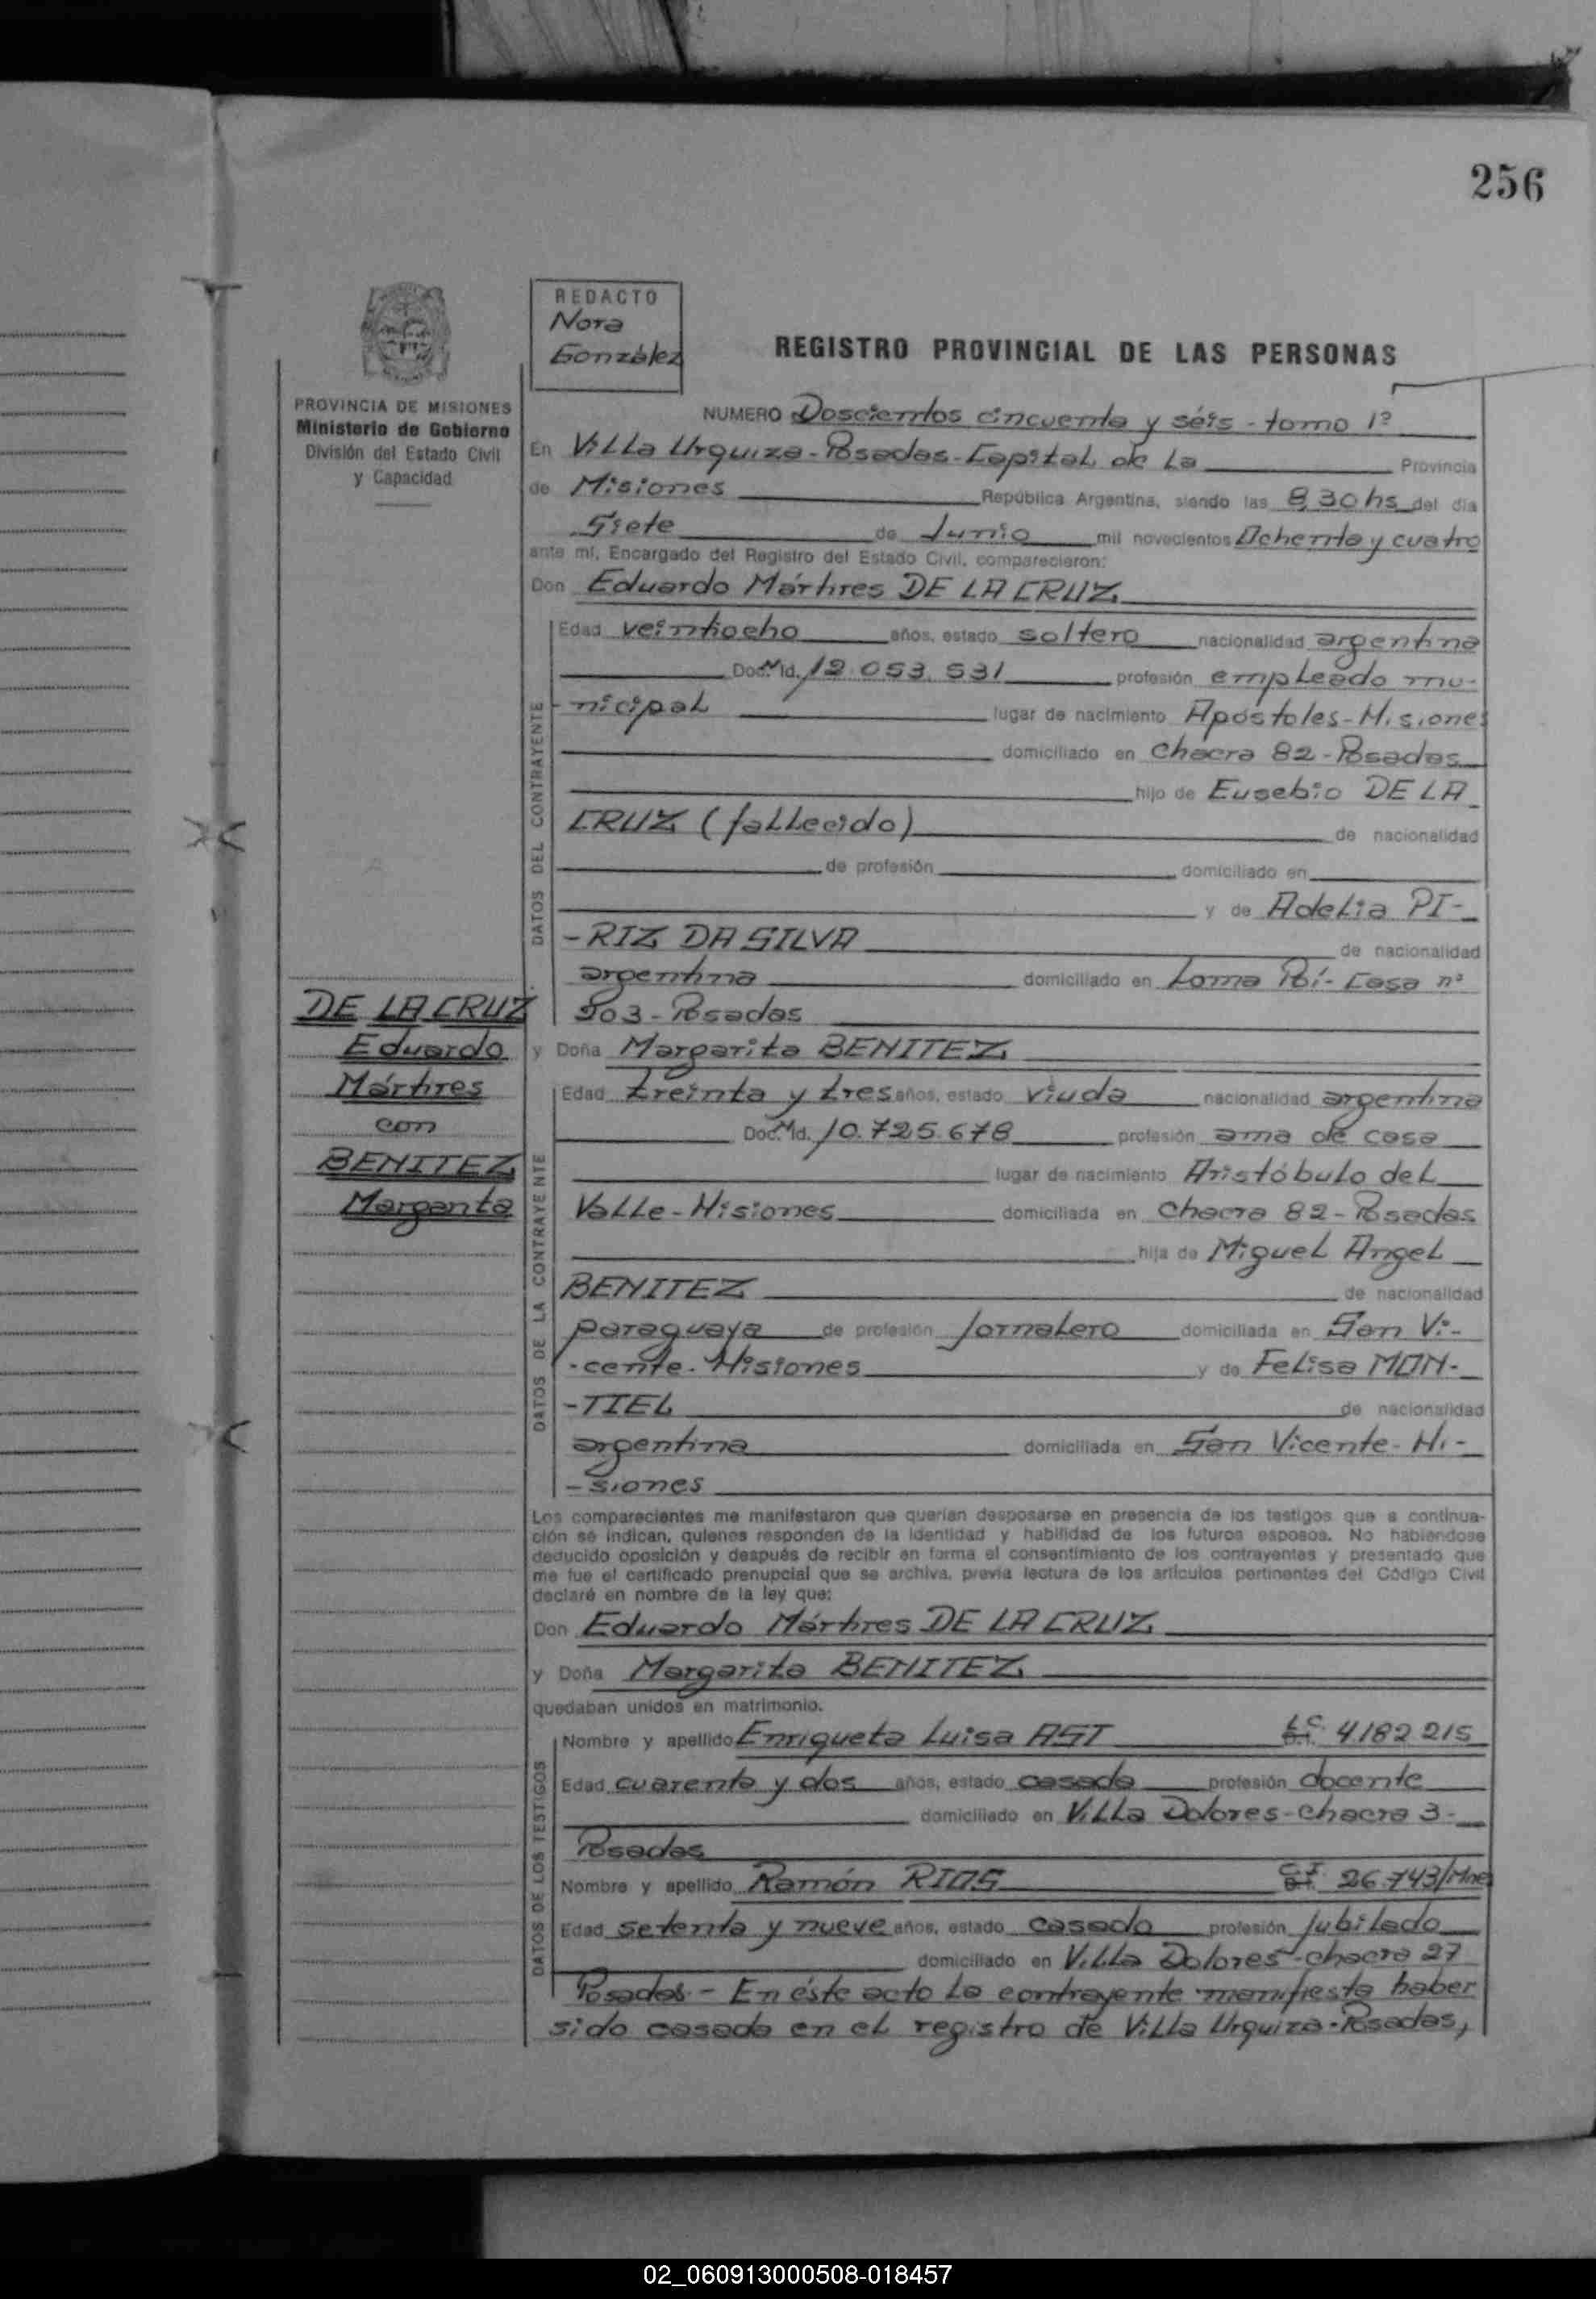 256
REDACTO
Nora
González
REGISTRO PROVINCIAL DE LAS PERSONAS
PROVINCIA DE MISIONES
Ministerio de Gobierno
División del Estado Civil
y Capacidad
NUMERO Doscientos cincuenta y séis - tomo 1º
En Villa Urquiza - Posadas - Capital de la Provincia
de Misiones República Argentina, siendo las 8,30 hs del día
Siete de Junio mil novecientos Ochenta y cuatro
ante mí, Encargado del Registro del Estado Civil, comparecieron:
Don Eduardo Mártires DE LA CRUZ
DATOS DEL CONTRAYENTE
Edad veintiocho años, estado soltero nacionalidad argentina
Doc. Id. 12.053.531 profesión empleado mu-
-nicipal lugar de nacimiento Apóstoles - Misiones
domiciliado en Chacra 82 - Posadas
hijo de Eusebio DE LA
CRUZ (fallecido) de nacionalidad
de profesión domiciliado en
y de Adelia PI-
-RIZ DA SILVA de nacionalidad
argentina domiciliado en Loma Poí - Casa nº
903 - Posadas
DE LA CRUZ
Eduardo
Mártires
con
BENITEZ
Margarita
y Doña Margarita BENITEZ
DATOS DE LA CONTRAYENTE
Edad treinta y tres años, estado viuda nacionalidad argentina
Doc. Id. 10.725.678 profesión ama de casa
lugar de nacimiento Aristóbulo del
Valle - Misiones domiciliada en Chacra 82 - Posadas
hija de Miguel Angel
BENITEZ de nacionalidad
paraguaya de profesión Jornalero domiciliada en San Vi-
-cente - Misiones y de Felisa MON-
-TIEL de nacionalidad
argentina domiciliada en San Vicente - Mi-
-siones
Los comparecientes me manifestaron que querían desposarse en presencia de los testigos que a continua-
ción se indican, quienes responden de la identidad y habilidad de los futuros esposos. No habiendose
deducido oposición y después de recibir en forma el consentimiento de los contrayentes y presentado que
me fue el certificado prenupcial que se archiva, previa lectura de los artículos pertinentes del Código Civil
declaré en nombre de la ley que:
Don Eduardo Mártires DE LA CRUZ
y Doña Margarita BENITEZ
quedaban unidos en matrimonio.
DATOS DE LOS TESTIGOS
Nombre y apellido Enriqueta Luisa AST L.C. 4182215
Edad cuarenta y dos años, estado casada profesión docente
domiciliado en Villa Dolores - chacra 3 -
Posadas
Nombre y apellido Ramón RIOS C.I. 26.743/Mnes
Edad setenta y nueve años, estado casado profesión jubilado
domiciliado en Villa Dolores - chacra 27
Posadas - En éste acto la contrayente manifiesta haber
sido casada en el registro de Villa Urquiza - Posadas,
02_060913000508-018457